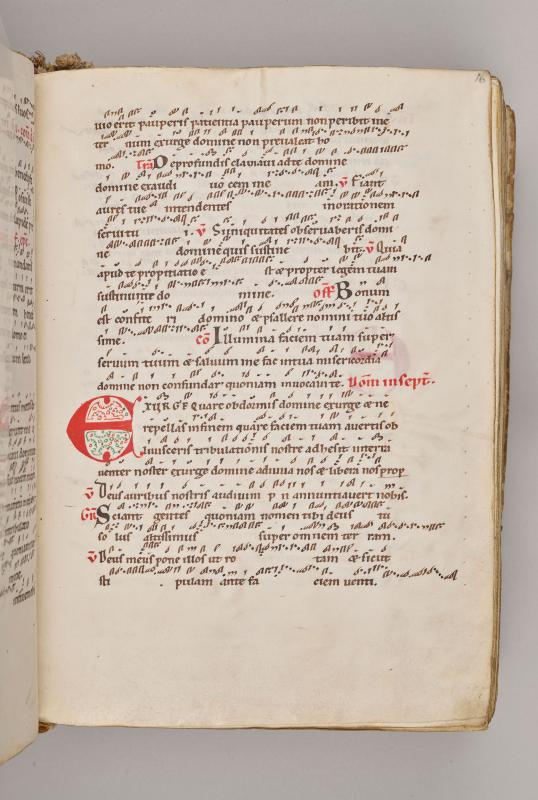 16
vio erit pauperis patientia pauperum non peribit in e
ter num exurge domine non prevaleat ho
mo. Tra De profundis clamavi ad te domine
domine exaudi vo cem me am. v Fiant
aures tue intendentes in orationem
servi tu i. v Si iniquitates observaberis domi
ne domine quis sustine bit. v Quia
apud te propitiatio e st & propter legem tuam
sustinui te do mine. off Bonum
est confite ri domino & psallere nomini tuo altis
sime. co Illumina faciem tuam super
servum tuum & salvum me fac in tua misericordia
domine non confundar quoniam invocavi te. Dom in sept.
EXURGE Quare obdormis domine exurge & ne
repellas in finem quare faciem tuam avertis ob
livisceris tribulationis nostre adhesit in terra
venter noster exurge domine adiuva nos & libera nos prop
v Deus auribus nostris audivim p n annuntiaver nobis.
Gr Sciant gentes quoniam nomen tibi deus tu
so lus altissimus super omnem ter ram.
v Deus meus pone illos ut ro tam & sicut
sti pulam ante fa ciem venti.